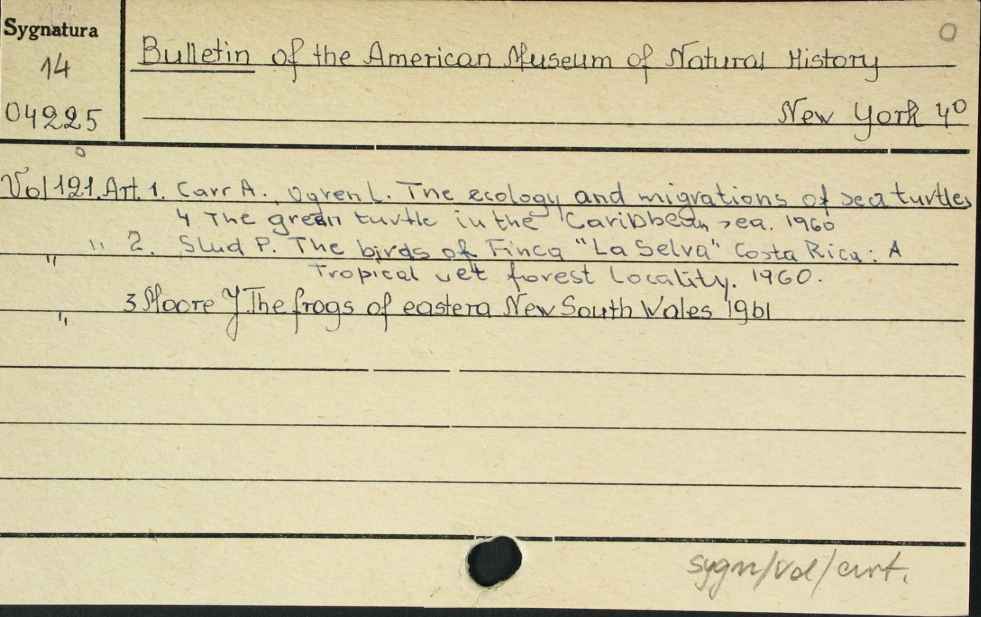 Sygnatura
14
04225
Bulletin of the American Museum of Natural History
New York 4°
Vol 121. Art. 1. Carr A. Ogren L. The ecology and migrations of sea turtles
4 The green turtle in the Caribbean sea. 1960
" " 2. Slud P. The birds of Finca "La Selva" Costa Rica: A
Tropical wet forest locality. 1960.
" 3 Moore J. The frogs of eastern New South Wales 1961
sygn/vol/art.